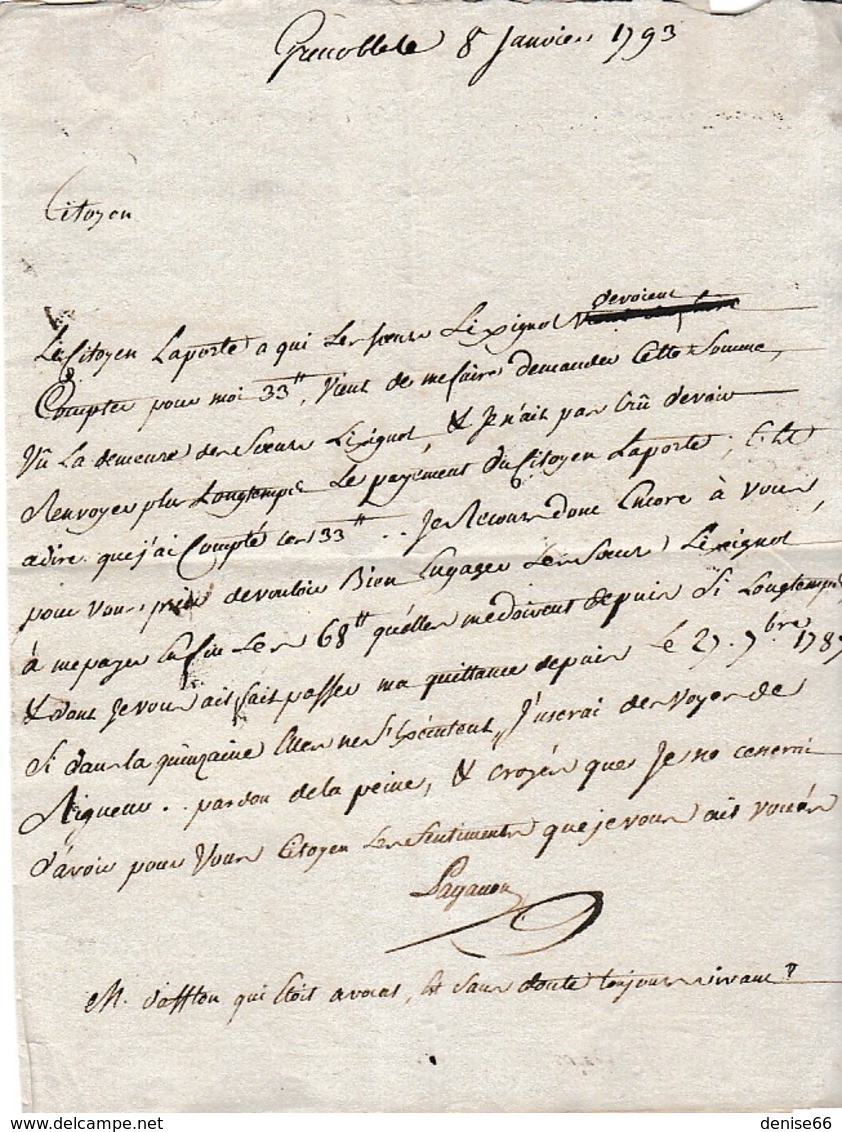 Grenoble le 8 Janvier 1793
Citoyen
devoient
Le Citoyen Laporte a qui les sœurs Lixignol
Compter pour moi 33 tt, vient de me faire demander Cette Somme,
Vû La demeure des Sœurs Lixignol, & Je n'ait pas Crû devoir
Renvoyer plus Longtemps Le payement du Citoyen Laporte, C'est
adire que j'ai Compté les 33 tt.. Je Recours donc Encore à Vous,
pour vous prier de vouloir Bien Engager Les Sœurs Lixignol
à me payer Enfin Les 68 tt qu'elles me doivent depuis Si Longtemps,
& dont Je vous ait fait passer ma quittance depuis Le 27. 7bre 1787
Si dans la quinzaine Elles ne S'Exécutent, J'userai des Voyes de
Rigueur.. pardon de la peine, & croyés que Je ne cesserai
d'avoir pour Vous Citoyen Les Sentiments que je vous ait voués
Paganon
M. qui Etoit avocat, Est Sans doute toujours vivant ?
denise66